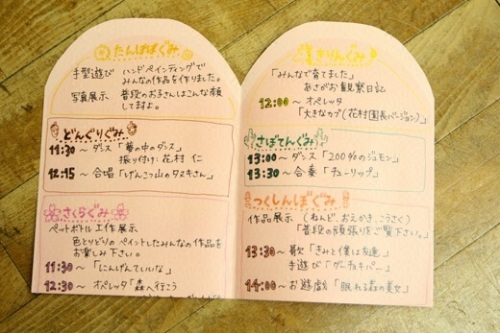 たんぽぽぐみ
手型遊び ハンドペインティングで
みんなの作品を作りました。
写真展示 普段のお子さんはこんな顔
してますよ。
どんぐりぐみ
11:30〜ダンス「夢の中のダンス」
振り付け:花村 仁
12:15〜合唱「げんこつ山のタヌキさん」
さくらぐみ
ペットボトル工作展示
色とりどりのペイントしたみんなの作品を
お楽しみ下さい。
11:30〜「にんげんていいな」
12:30〜オペレッタ「森へ行こう
きりんぐみ
「みんなで育てました」
あさがお観察日記
12:00〜オペレッタ
「大きなカブ(花村園長バージョン)」
さぼてんぐみ
13:00〜ダンス「200%のジョモン」
13:30〜合奏「チューリップ」
つくしんぼぐみ
作品展示(ねんど、おえかき、こうさく)
「普段の頑張りをご覧下さい。」
13:30〜歌「きみと僕は友達」
手遊び「グーチョキパー」
14:00〜お遊戯「眠れる森の美女」